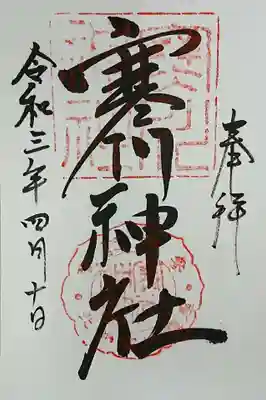 奉拝
寒川神社
令和三年四月十日